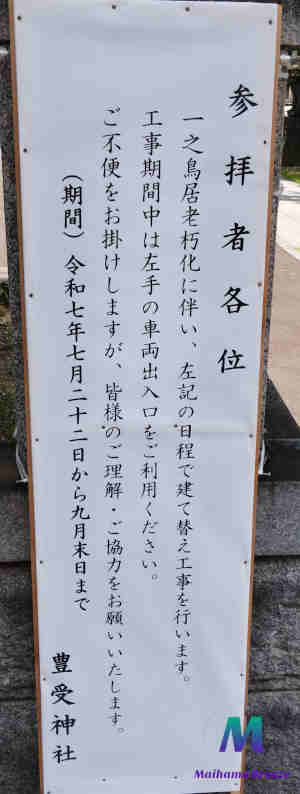 参拝者各位
一之鳥居老朽化に伴い、左記の日程で建て替え工事を行います。
工事期間中は左手の車両出入口をご利用ください。
ご不便をお掛けしますが、皆様のご理解・ご協力をお願いいたします。
（期間）令和七年七月二十二日から九月末日まで
豊受神社
M